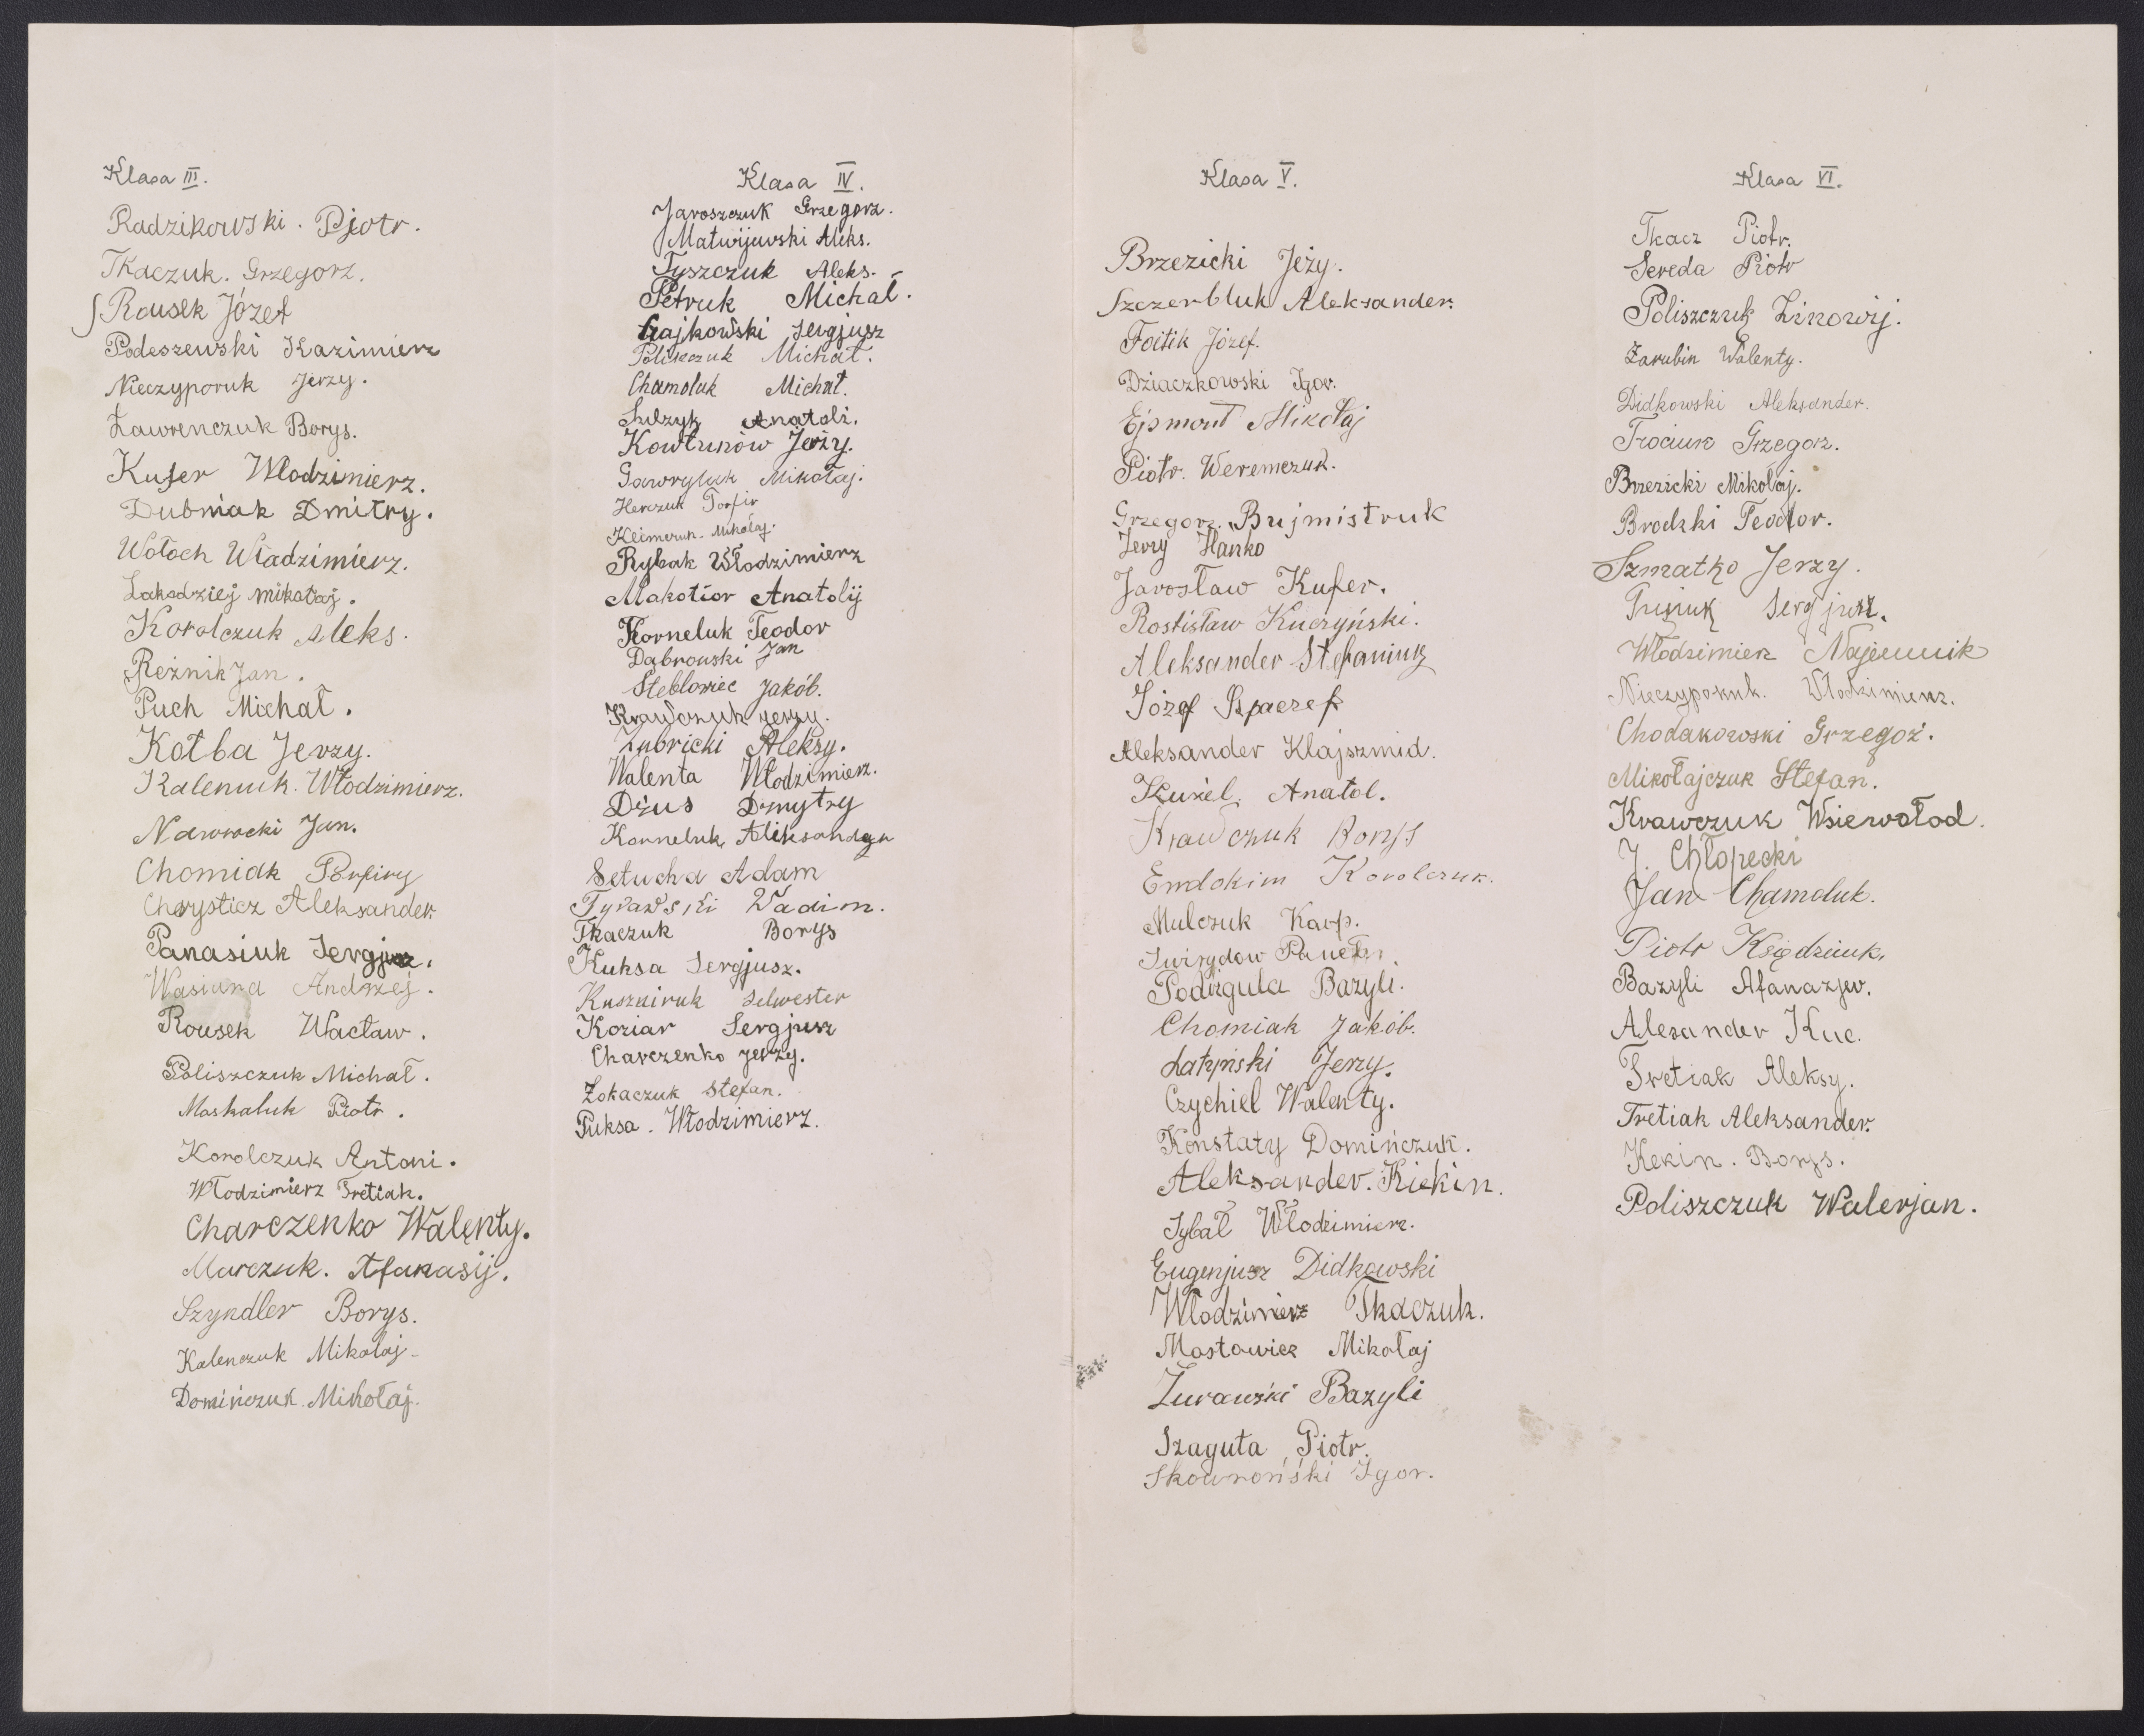 Klasa III.
Radzikowski. Pjotr.
Tkaczuk. Grzegorz.
Rousek Józef
Podeszewski Kazimierz
Nieczyporuk Jerzy.
Ławrenczuk Borys.
Kufer Włodzimierz.
Dubniak Dmitry.
Wołoch Władzimierz.
Zakadziej mikołaj.
Korolczuk Aleks.
Reżnik Jan.
Puch Michał.
Kotba Jerzy.
Kaleniuk. Włodzimierz.
Nawrocki Jan.
Chomiak Porfiry
Chrysticz Aleksander.
Panasiuk Sergjusz.
Wasiura Andrzej.
Rousek Wacław.
Poliszczuk Michał.
Moskaluk Piotr.
Korolczuk Antoni.
Włodzimierz Tretiak.
Charczenko Walenty.
Marczuk. Afanasij.
Szyndler Borys.
Kalenczuk Mikołaj
Domińczuk. Mikołaj.
Klasa IV.
Jaroszczuk Grzegorz.
Matwijewski Aleks.
Tyszczuk Aleks.
Petruk Michał.
Gajkowski Sergjusz
Poliszczuk Michał.
Chamoluk Michał.
Sulzyk Anatoli.
Kowtunów Jerzy.
Gawryluk Mikołaj.
Herczuk Porfir
Klimczuk. Mikołaj.
Rybak Włodzimierz
Makotior Anatolij
Korneluk Teodor
Dąbrowski Jan
Stebłowiec Jakób.
Krawczuk Jerzy.
Zubricki Aleksy.
Walenta Włodzimierz.
Dżus Dmytry
Korneluk Aleksandyr
Setucha Adam
Tyrawski Wadim.
Tkaczuk Borys
Kuksa Sergjusz.
Kuszniruk Selwester
Koziar Sergjusz
Charczenko Jerzy.
Żokaczuk Stefan.
Puksa. Włodzimierz.
Klasa V.
Brzezicki Jeży.
Szczerbluk Aleksander.
Foitik Józef.
Dziaczkowski Igor.
Ejsmont Mikołaj
Piotr. Weremczuk.
Grzegorz. Bujmistruk
Jerzy Hanko
Jarosław Kufer.
Rostisław Kuczyński.
Aleksander Stefaniuk
Józef Szpaczef
Aleksander Klajszmid.
Kuziel. Anatol.
Krawczuk Borys
Emdokim Korolczuk.
Mulczuk Karp.
Swirydow
Podziguła Bazyli.
Chomiak Jakób.
Łatyński Jerzy.
Czychiel Walenty.
Konstaty Domińczuk.
Aleksander. Kiekin.
Sybał Włodzimierz.
Eugenjusz Didkowski
Włodzimierz Tkaczuk.
Mostowicz Mikołaj
Żurawski Bazyli
Szaguta Piotr.
Skowroński Igor.
Klasa VI.
Tkacz Piotr.
Sereda Piotr
Poliszczuk Zinowij.
Zarubin Walenty.
Didkowski Aleksander.
Trociuk Grzegorz.
Brzezicki Mikołaj.
Brodzki Teodor.
Szmatko Jerzy.
Sergjusz.
Włodzimierz Najemnik
Nieczyporuk. Włodzimierz.
Chodakowski Grzegoż.
Mikołajczuk Stefan.
Krawczuk Wsiewołod.
J. Chłopecki
Jan Chamoluk.
Piotr Księdziuk.
Bazyli Afanazjev.
Alesander Kuc.
Tretiak Aleksy.
Tretiak Aleksander.
Kekin. Borys.
Poliszczuk Walerjan.